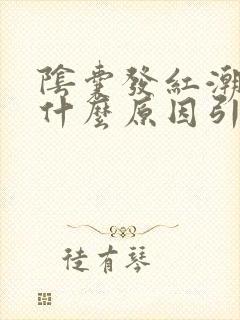 陰囊發紅潮
什麼原因引
徒有琴